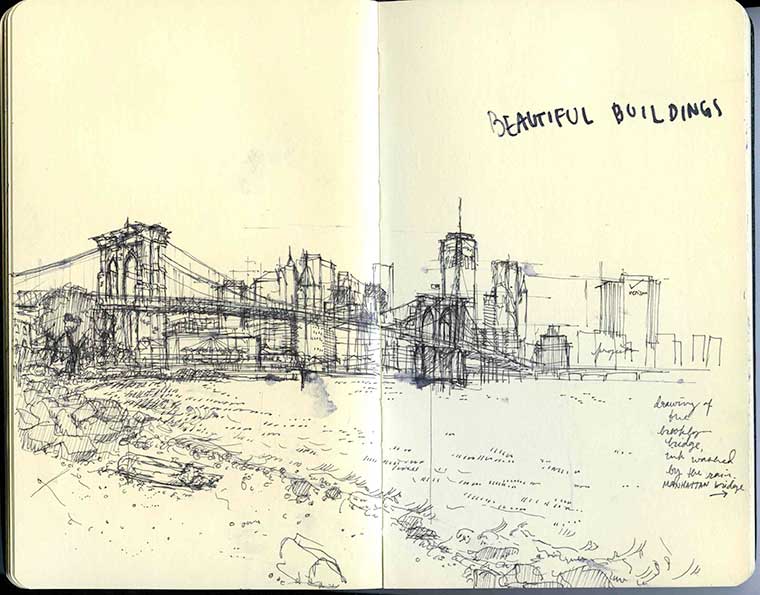 BEAUTIFUL BUILDINGS
verizon
drawing of
the
brooklyn
bridge,
ink washed
by the rain.
MANHATTAN bridge